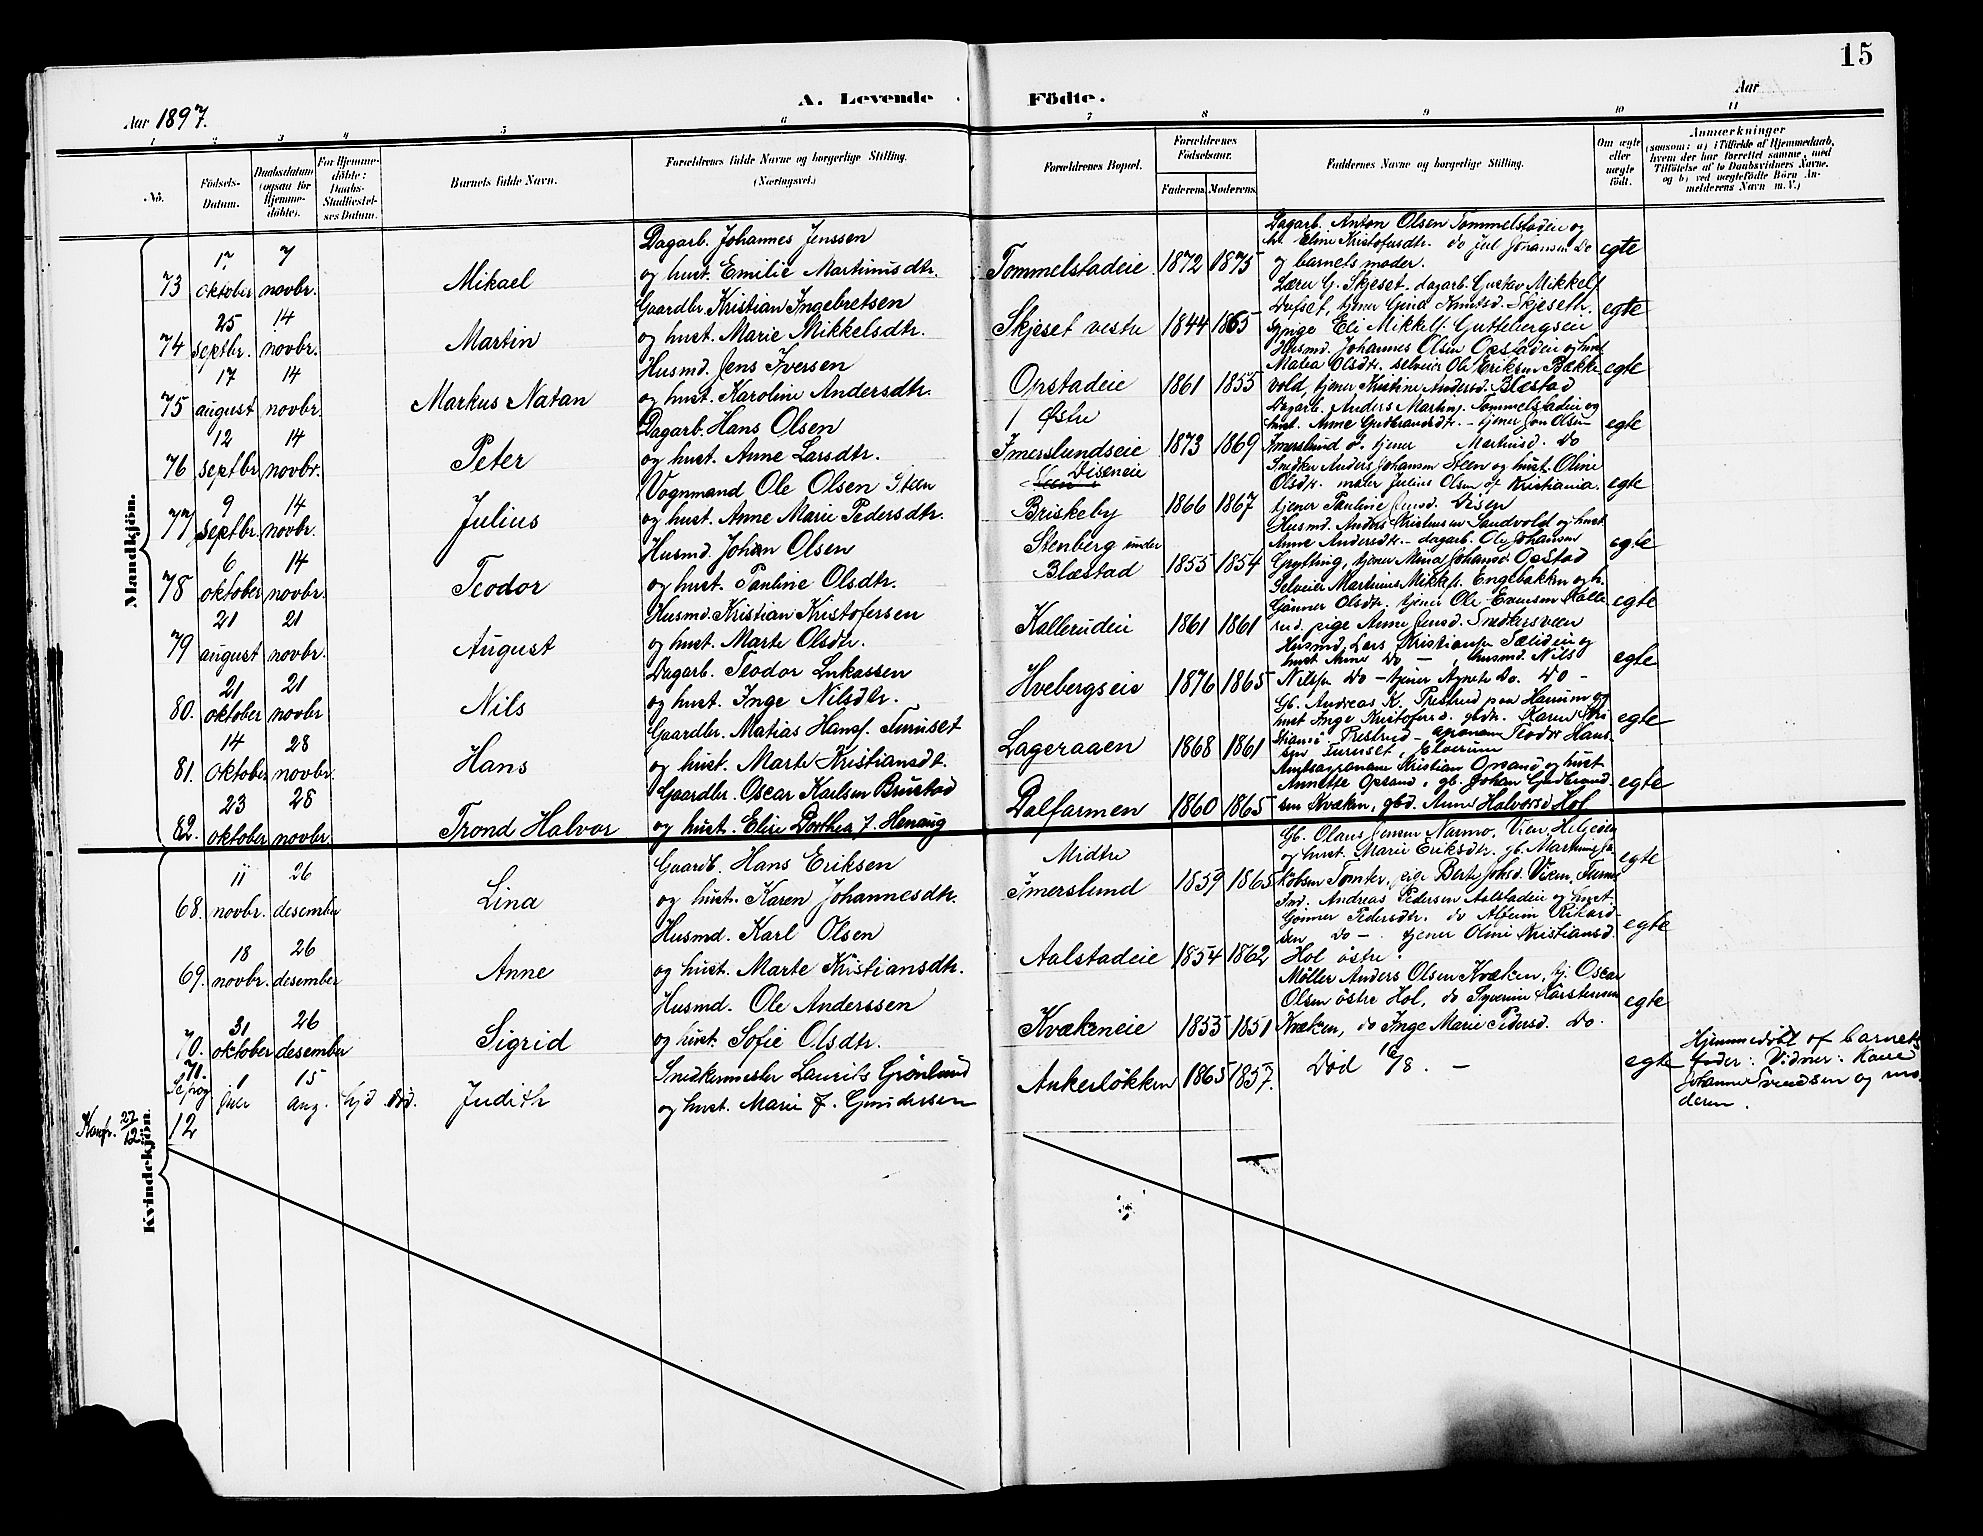 15
Aar 1897.
A. Levende
Födte.
Aar
1 2 3 4 5 6 7 8 9 10 11
No.
Födsels-Datum.
Daabsdatum (ogsaa for Hjemmedöbte).
For Hjemmedöbte: Daabs-Stadfæstelses Datum.
Barnets fulde Navn.
Forældrenes fulde Navne og borgerlige Stilling. (Næringsvei.)
Forældrenes Bopæl.
Forældrenes Födselsaar.
Faderens. Moderens.
Faddernes Navne og borgerlige Stilling.
Om ægte eller uægte födt.
Anmærkninger
(saasom: a) i Tilfælde af Hjemmedaab, hvem der har forrettet samme, med Tilföielse af to Daabsvidners Navne. og b) ved uægtefödte Börn Anmelderens Navn m. V.)
Mandkjön.
73 17 oktober 7 novbr. Mikael
Dagarb. Johannes Jenssen
og hust. Emilie Martinusdtr.
Tommelstadeie 1872 1875
Dagarb. Anton Olsen Tommelstadeie og
hr. Eline Kristofersdtr. do Jul Johansen Do
og barnets moder.
egte
74 25 septbr. 14 novbr. Martin
Gaardbr. Kristian Ingebretsen
og hust. Marie Mikkelsdtr.
Skjeset vestre 1844 1865
Lærer G. Skjeset. dagarb. Gustav Mikkels
tjener Gina Knudsd. Skjeseth.
Eli Mikkels. Guttebergseie
egte
75 17 august 14 novbr. Markus Natan
Husmd. Jens Iversen
og hust. Karoline Andersdtr.
Opstadeie 1861 1855
Husmd. Johannes Olsen Opstadeie og hust
Matea Olsdtr. selveier Ole Eriksen Bække
vold, tjener Kristine Andersd. Blæstad
egte
76 12 septbr 14 novbr. Peter
Dagarb. Hans Olsen
og hust. Anne Larsdtr.
Østre
Imerslundseie 1873 1869
Dagarb. Anders Martins. Tommelstadeie og
hust. Anne Gudbrandsdtr. - tjener Jon Olsen
Imerslund ö. tjener Martinsd. Do
egte
77 9 septbr. 14 novbr. Julius
Vognmand Ole Olsen Steen
og hust. Anne Marie Pedersdtr.
Diseneie
Briskeby 1866 1867
Snedker Anders Johansen Steen og hust. Oline
Olsdtr. maler Julius Olsen af Kristiania.
tjener Pauline Jensd. Disen
egte
78 6 oktober 14 novbr. Teodor
Husmd. Johan Olsen
og hust. Pauline Olsdtr.
Stenberg under
Blæstad 1855 1854
Husmd. Anders Kristiansen Sandvold og hust
Anne Andersdtr. - dagarb. Ole Johansen
Grytting, tjener Mina Johansd. Opstad
egte
79 21 august 21 novbr. August
Husmd. Kristian Kristofersen
og hust. Marte Olsdtr.
Kallerudeie 1861 1861
Selveier Martinus Mikkels. Engebakken og h.
Gönner Olsdtr. tjener Ole Evensen Kalle
rud, pige Anne Jensd. Snedkersveen
egte
80. 21 oktober 21 novbr Nils
Dagarb. Teodor Lukassen
og hust. Inge Nilsdtr.
Hvebergseie 1876 1865
Husmd. Lars Kristians. Sælideie og
hust Anne Do - , husmd. Nils
Nilsen Do - tjener Agnete Do. Do -
egte
81. 14 oktober 28 novbr. Hans
Gaardbr. Matias Hans. Furuset
og hust. Marte Kristiansdt.
Lageraaen 1868 1861
Gb. Andreas K. Frestad paa Hamum og
hust Inge Kristofersd. gbdr. Karen Kri
stians. Frestad - agronom Teodor Han
sen Furuset, Elverum
egte
82. 23 oktober 28 novbr. Trond Halvor
Gaardbr. Oscar Karlsen Brustad
og hust. Elise Dorthea f. Henaug
Dalfarmen 1860 1865
Amtsagronom Kristian Opsand og hust
Annette Opsand, gb. Johan Gudbrand
sen Kvæken, gbd. Anne Halvorsd Hol
egte
Kvindekjön.
68. 11 novbr. 26 desember Lina
Gaardb. Hans Eriksen
og hust. Karen Johannesdtr.
Midtre
Imerslund 1859 1865
Gb. Olaus Jensen Narmo, Vien
og hust. Marie Eriksdtr. gb. Martinus Ja-
kobsen Tomter, pige Berte Johsd. Vien,
egte
69. 18 novbr. 26 desember Anne
Husmd. Karl Olsen
og hust. Marte Kristiansdtr.
Aalstadeie 1854 1862
Ind. Andreas Pedersen Aalstadeie og hust.
Gönner Pedersdtr. do Alfein Rikard-
sen Do - . tjener Oline Kristiansd.
Hol östre.
egte
70. 31 oktober 26 desember Sigrid
Husmd. Ole Anderssen
og hust. Sofie Olsdtr.
Kvækeneie 1853 1851
Møller Anders Olsen Kvæken, tj. Oscar
Olsen östre Hol, do Syverine Karstensen
Kvæken, do Inge Marie Pedersd. Do.
egte
71. 1 juer 15 aug. hjd död. Judith
Snedkermester Laurits Grönlund
og hust. Marie f. Gundersen
Ankerlökken 1865 1857.
Död 16/8. -
egte
Hjemmedöbt af barnets
fader: Vidner: Kaue
Johanne Svendsen og mo
deren.
Konf. 27/12 12